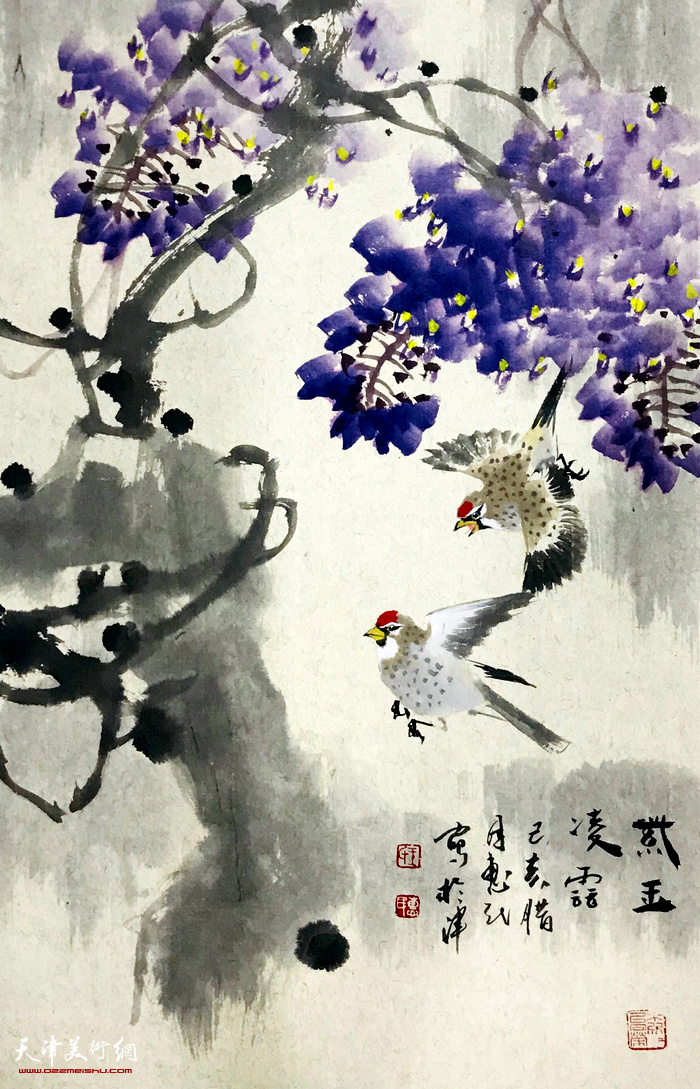 紫玉
凌
己亥腊
月惠民
寫於津
天津美術網
www.022meishu.com